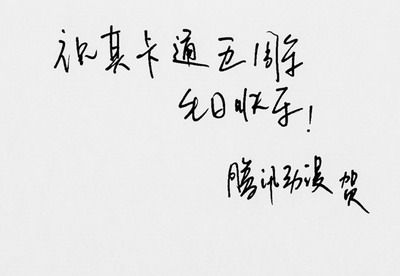 祝其卡通五周年
生日快乐!
腾讯动漫 贺